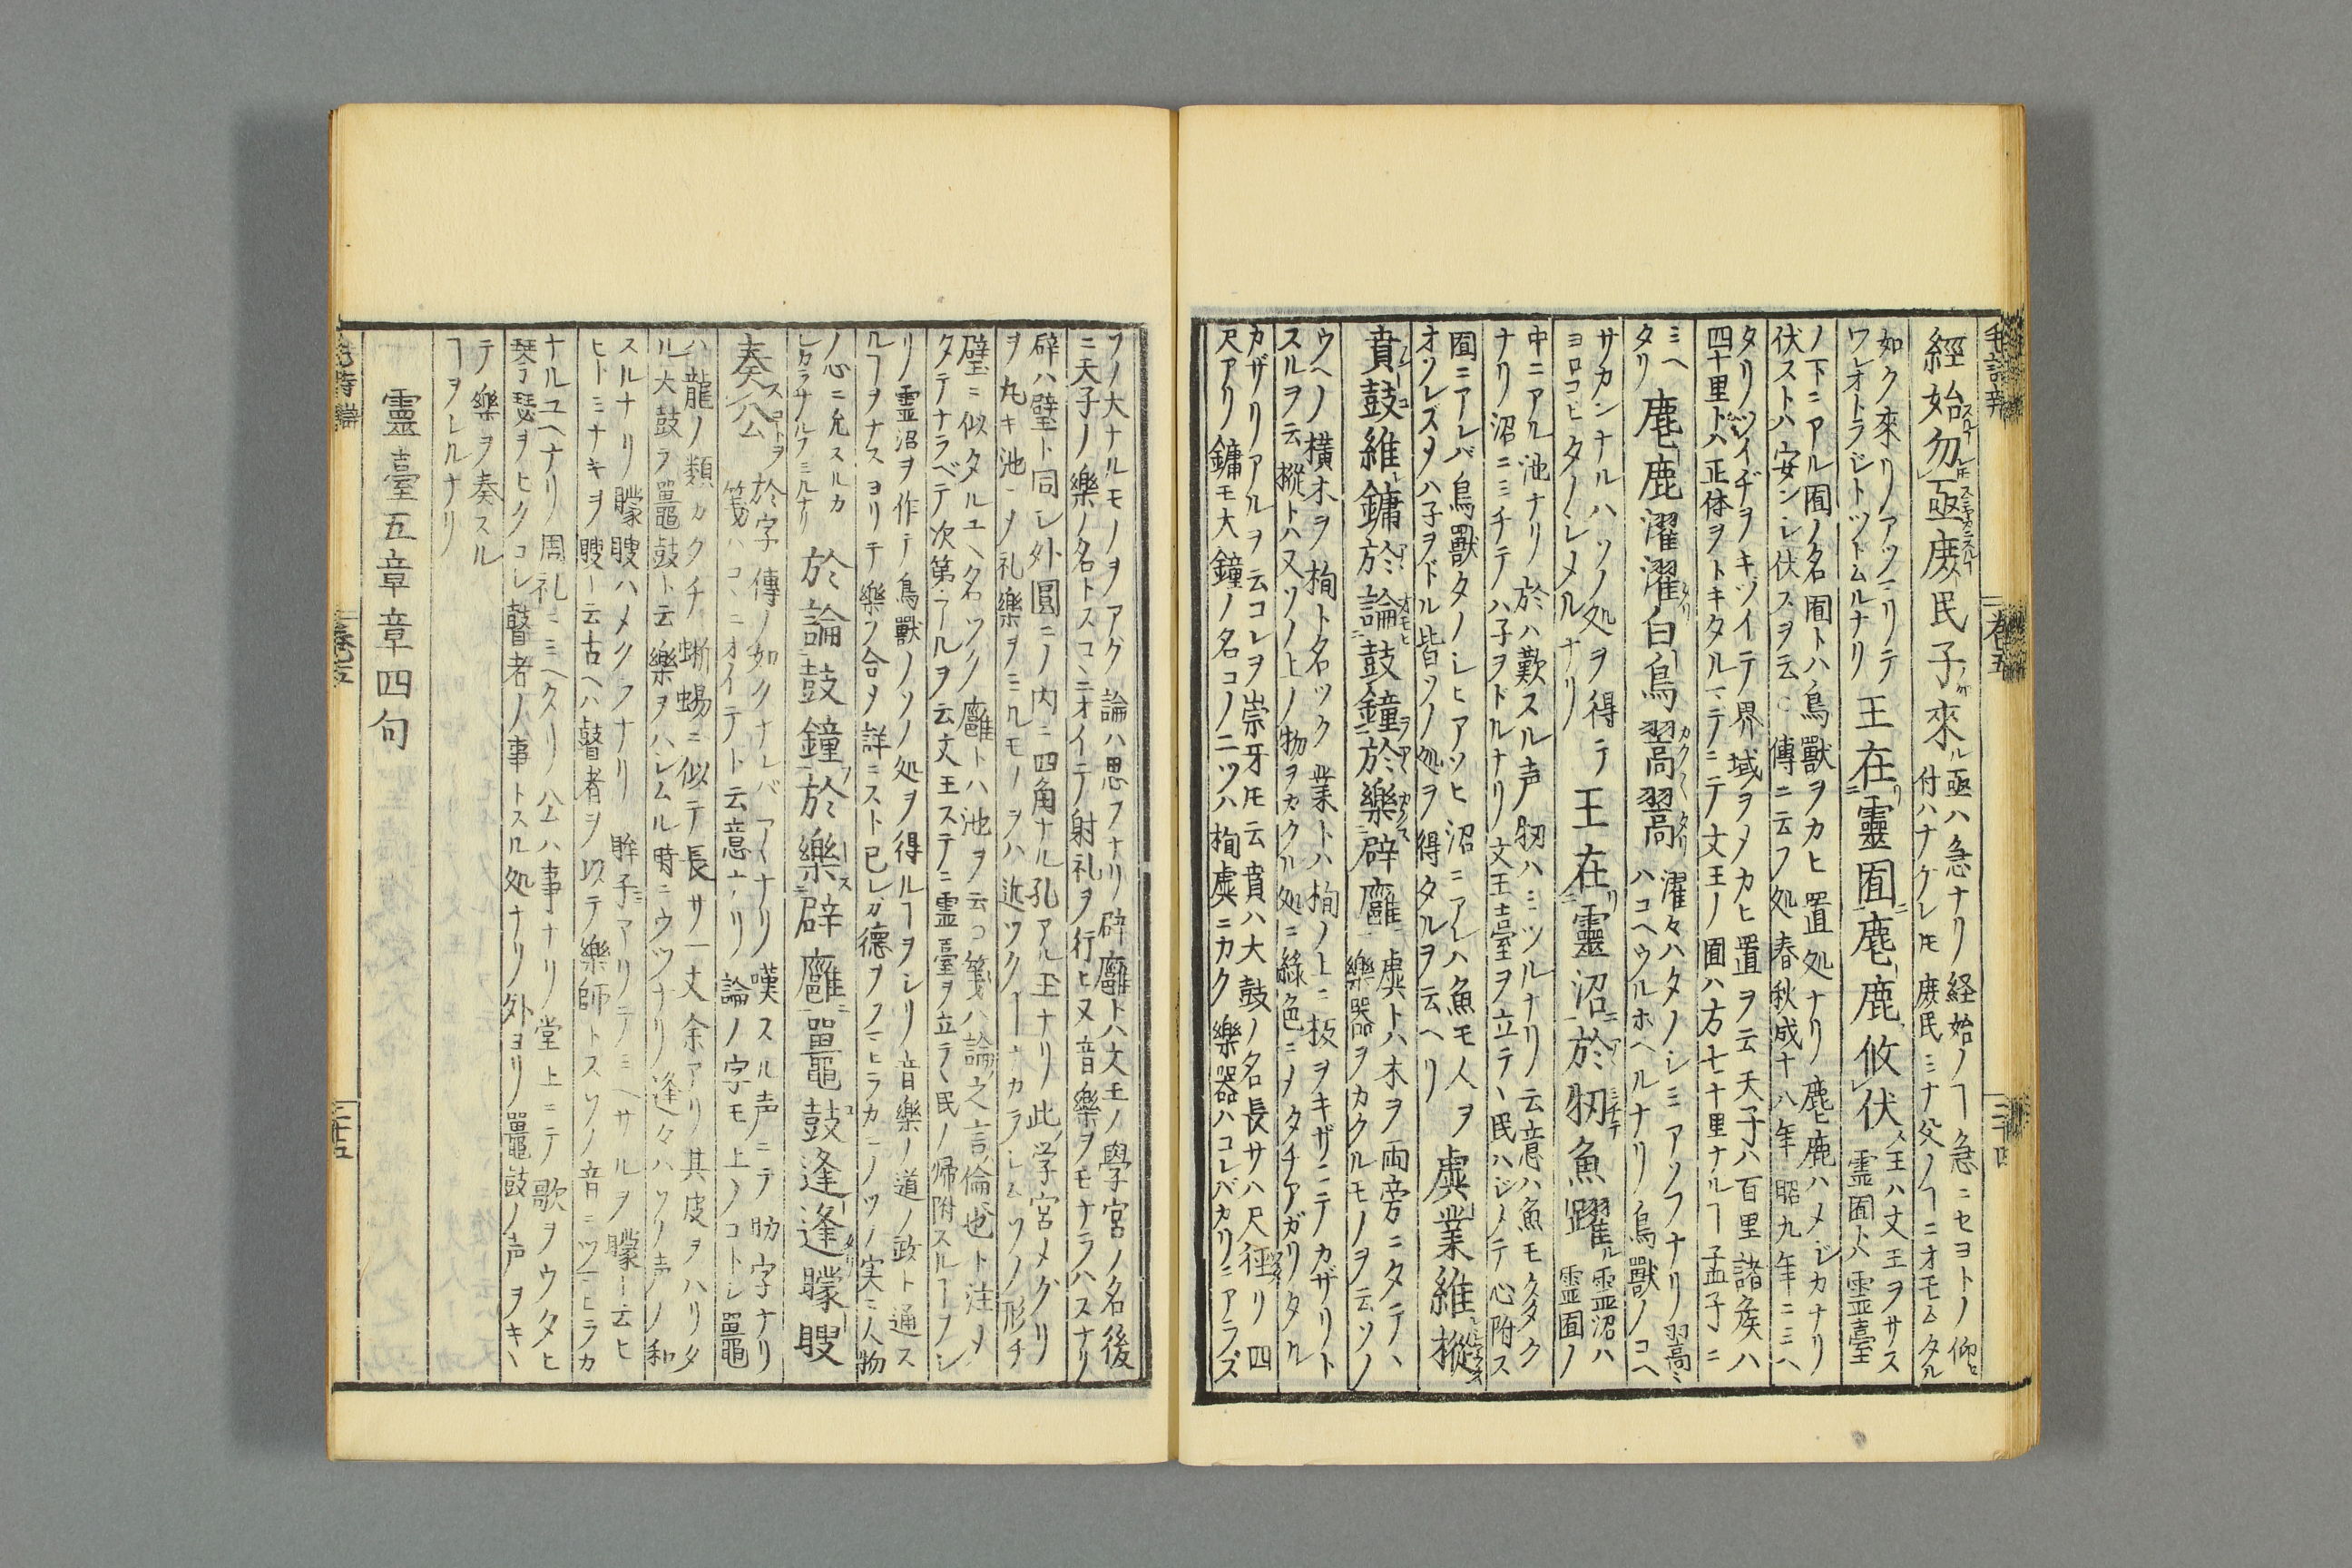 經始勿亟庶民子來
亟ハ急ナリ経始ノヿ急ニセヨトノ仰ヒ
付ハナケレ𪜈庶民ミナ父ノヿニオモムタル
如ク來リノアツマリテ
ワレオトラジトツトムルナリ
王在靈囿麀鹿攸伏
王ハ文王ヲサス
霊囿トハ霊臺
ノ下ニアル囿ノ名囿トハ鳥獸ヲカヒ置処ナリ麀鹿ハメジカナリ
伏ストハ安ンシ伏スヲ云
傳ニ云フ処春秋成十八年昭九年ニミハ
タリツイヂヲキヅイテ界域ヲメカヒ置ヲ云天子ハ百里諸矦ハ
四十里トハ正体ヲトキタルマデニテ文王ノ囿ハ方七十里ナルヿ孟子ニ
ミヘ
タリ
麀鹿濯濯白鳥翯翯
濯々ハタノシミアソフナリ翯々
ハコヘウルホヘルナリ鳥獸ノコヘ
サカンナルハソノ処ヲ得テ
ヨロコヒタノシメルナリ
王在靈沼於牣魚躍
霊沼ハ
霊囿ノ
中ニアル池ナリ於ハ歎スル声牣ハミツルナリ云意ハ魚モ多ク
ナリ沼ニミチテハ子ヲドルナリ文王臺ヲ立テ民ハジメテ心附ス
囿ニアレバ鳥獸タノシヒアソヒ沼ニアレハ魚モ人ヲ
オソレズメハ子ヲドル皆ソノ処ヲ得タルヲ云ヘリ
虡業維樅
賁鼓維鏞於論鼓鐘於樂辟廱
虡トハ木ヲ両旁ニタテヽ
樂器ヲカクルモノヲ云ソノ
ウヘノ横木ヲ栒ト名ツク業トハ栒ノ上ニ板ヲキザミテカザリト
スルヲ云樅トハ又ソノ上ノ物ヲカクル処ニ綠色ニメタチアガリタル
カザリアルヲ云コレヲ崇牙𪜈云賁ハ大鼓ノ名長サハ尺徑リ四
尺アリ鏞モ大鐘ノ名コノ二ツハ栒虡ニカク樂器ハコレバカリニアラズ
ヲノ大ナルモノヲアグ論ハ思フナリ辟廱トハ文王ノ學宮ノ名後
ニ天子ノ樂ノ名トスコヽニオイテ射礼ヲ行ヒ又音樂ヲモナラハスナリ
辟ハ璧ト同シ外圓ニノ内ニ四角ナル孔アル玉ナリ此学宮メグリ
ヲ丸キ池ニメ礼樂ヲミルモノヲハ近ツクヿナカラシムソノ形チ
璧ニ似タルユヘ名ツク廱トハ池ヲ云箋ハ論之言倫也ト注メ
タテナラベテ次第アルヲ云文王ステニ霊臺ヲ立テヽ民ノ帰附スルヿヲシ
リ霊沼ヲ作テ鳥獸ノソノ処ヲ得ルヿヲシリ音樂ノ道ノ政ト通ス
ルヿヲナスヨリテ樂ヲ合メ詳ニスト已レガ德ヲフマヒラカニノソノ実ニ人物
ノ心ニ允スルカ
シカラサルヲミルナリ
於論鼓鐘於樂辟廱鼉鼓逢逢矇瞍
奏公
於字傳ノ如クナレバアヽナリ嘆スル声ニテ助字ナリ
箋ハコヽニオイテト云意ナリ論ノ字モ上ノコトシ鼉
ハ龍ノ類カタチ蜥蜴ニ似テ長サ一丈余アリ其皮ヲハリタ
ル大鼓ヲ鼉鼓ト云樂ヲハシムル時ニウツナリ逢々ハソノ声ノ和
スルナリ矇瞍ハメクラナリ眸子アリテミヘサルヲ矇ト云ヒ
ヒトミナキヲ瞍ト云古ヘハ瞽者ヲ以テ樂師トスソノ音ニツマヒラカ
ナルユヘナリ周礼ニミヘタリ公ハ事ナリ堂上ニテ歌ヲウタヒ
琴瑟ヲヒクコレ瞽者ノ事トスル処ナリ外ヨリ鼉鼓ノ声ヲキヽ
テ樂ヲ奏スル
ヿヲシルナリ
靈臺五章章四句